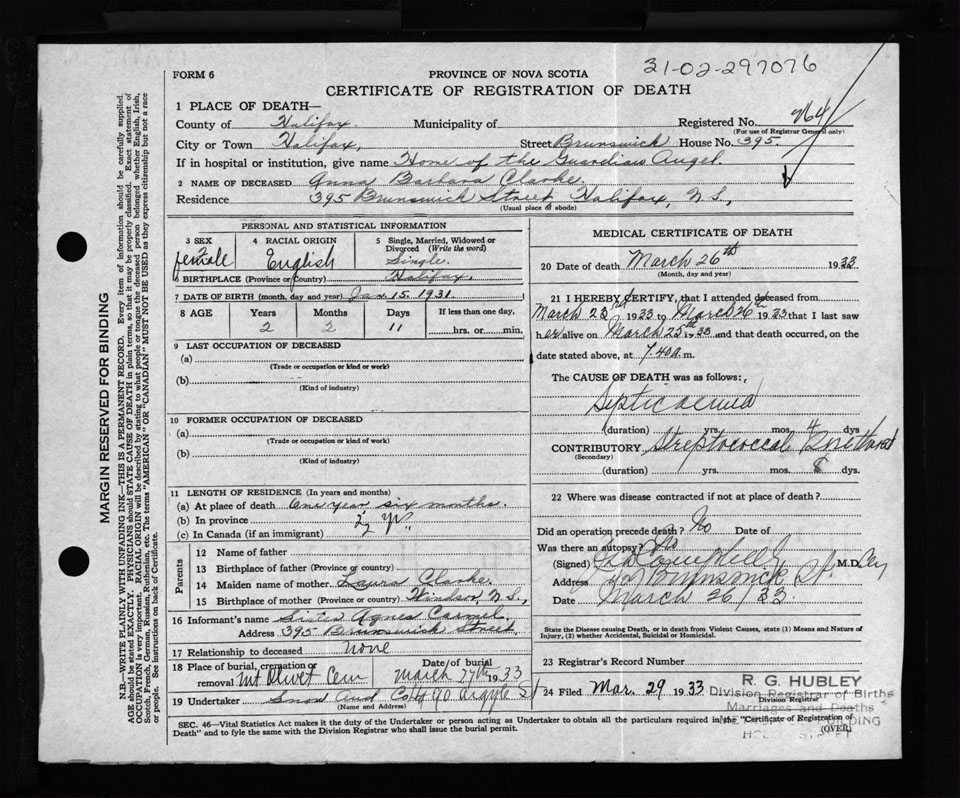 31-02-297076
FORM 6
PROVINCE OF NOVA SCOTIA
CERTIFICATE OF REGISTRATION OF DEATH
1 PLACE OF DEATH—
County of Halifax. Municipality of Registered No. 764
(For use of Registrar General only)
City or Town Halifax, Street Brunswick House No. 395.
If in hospital or institution, give name Home of the Guardian Angel.
2 NAME OF DECEASED Anna Barbara Clarke.
Residence 395 Brunswick Street, Halifax, N.S.,
(Usual place of abode)
PERSONAL AND STATISTICAL INFORMATION
3 SEX female
4 RACIAL ORIGIN English
5 Single, Married, Widowed or Divorced (Write the word) Single.
6 BIRTHPLACE (Province or Country) Halifax.
7 DATE OF BIRTH (month, day and year) Jan. 15. 1931.
8 AGE Years Months Days If less than one day,
2 2 11 hrs. or min.
9 LAST OCCUPATION OF DECEASED
(a)
(Trade or occupation or kind or work)
(b)
(Kind of industry)
10 FORMER OCCUPATION OF DECEASED
(a)
(Trade or occupation or kind of work)
(b)
(Kind of industry)
11 LENGTH OF RESIDENCE (In years and months)
(a) At place of death One year six months.
(b) In province 2 yr.
(c) In Canada (if an immigrant)
Parents
12 Name of father
13 Birthplace of father (Province or country)
14 Maiden name of mother Laura Clarke.
15 Birthplace of mother (Province or country) Windsor N.S.,
16 Informant's name Sister Agnes Carmel
Address 395 Brunswick Street.
17 Relationship to deceased none
18 Place of burial, cremation or removal Mt Olivet Cem Date of burial March 27th 1933
19 Undertaker Snow and Co 90 Argyle St
(Name and Address)
MEDICAL CERTIFICATE OF DEATH
20 Date of death March 26th 1933
(Month, day and year)
21 I HEREBY CERTIFY, that I attended deceased from
March 1933 to March 26th 1933 that I last saw
her alive on March 25th 33 and that death occurred, on the
date stated above, at 7.40 a.m.
The CAUSE OF DEATH was as follows:
Septicaemia
(duration) yrs. mos. 4 dys.
CONTRIBUTORY Streptococcal
(Secondary)
(duration) yrs. mos. 8 dys.
22 Where was disease contracted if not at place of death?
Did an operation precede death? No Date of
Was there an autopsy? No
(Signed) Campbell M.D.
Address Brunswick St.
Date March 26/33
State the Disease causing Death, or in death from Violent Causes, state (1) Means and Nature of
Injury, (2) whether Accidental, Suicidal or Homicidal.
23 Registrar's Record Number
24 Filed Mar. 29 1933
R. G. HUBLEY
Division Registrar of Births
Division Registrar
Marriages and Deaths
SEC. 46—Vital Statistics Act makes it the duty of the Undertaker or person acting as Undertaker to obtain all the particulars required in the "Certificate of Registration of
Death" and to fyle the same with the Division Registrar who shall issue the burial permit.
(OVER)
MARGIN RESERVED FOR BINDING
N.B.—WRITE PLAINLY WITH UNFADING INK—THIS IS A PERMANENT RECORD. Every item of information should be carefully supplied.
AGE should be stated EXACTLY. PHYSICIANS should STATE CAUSE OF DEATH in plain terms, so that it may be properly classified. Exact statement of
OCCUPATION is very important. RACIAL ORIGIN will be described by stating to what people or tongue the deceased person belonged whether English, Irish,
Scotch, French, German, Russian, Ruthenian, etc. The terms "AMERICAN" or "CANADIAN" MUST NOT BE USED as they express citizenship but not a race
or people. See instructions on back of Certificate.